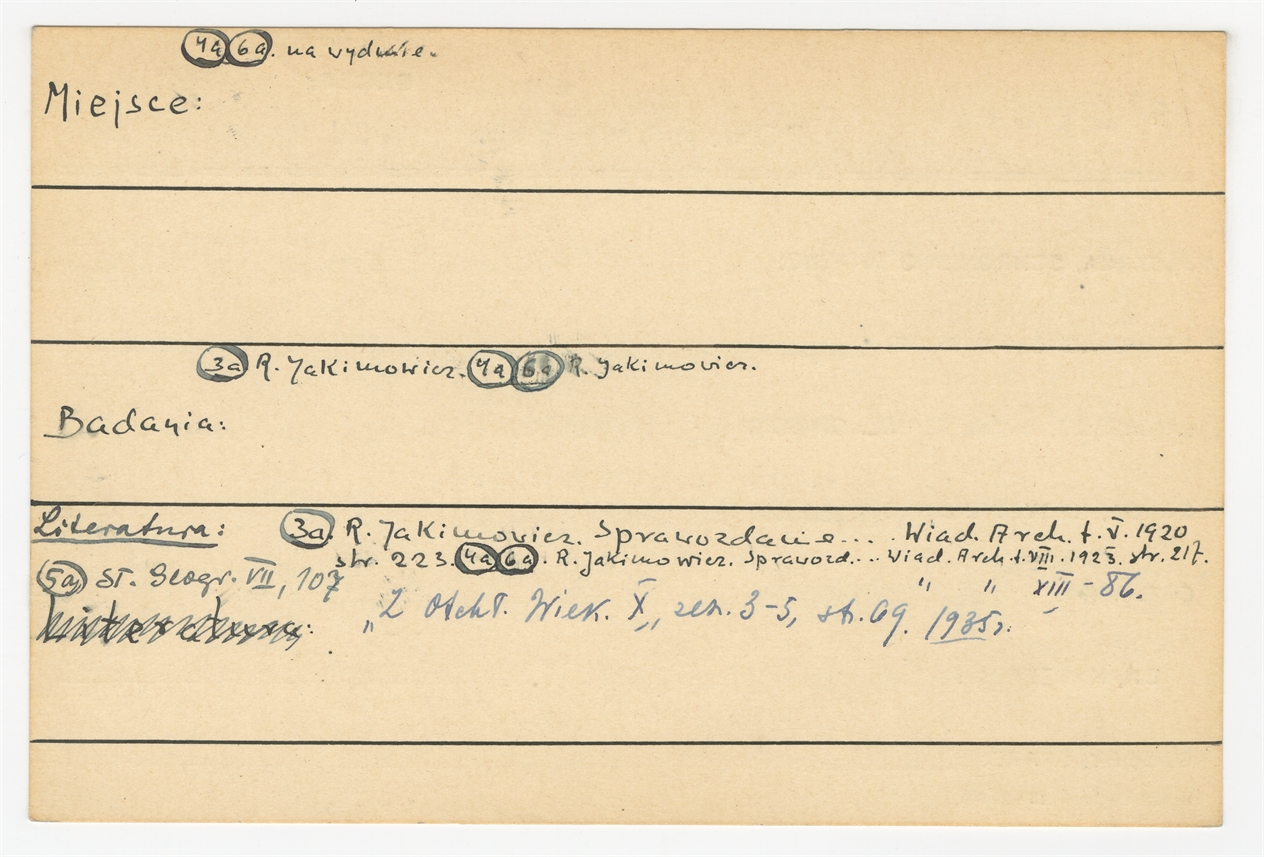 4a 6a. na wydmie.
Miejsce:
3a R. Jakimowicz. 4a 6a R. Jakimowicz.
Badania:
Literatura: 3a. R. Jakimowicz. Sprawozdanie... Wiad. Arch. t. V. 1920
str. 223. 4a 6a. R. Jakimowicz. Sprawozd... Wiad. Arch. t. VIII. 1923. str. 217.
5a) St. Geogr. VII, 107 " " XIII - 86.
„Z Otchł. Wiek. X„ zesz. 3-5, str. 69. 1935r.
Literatura: